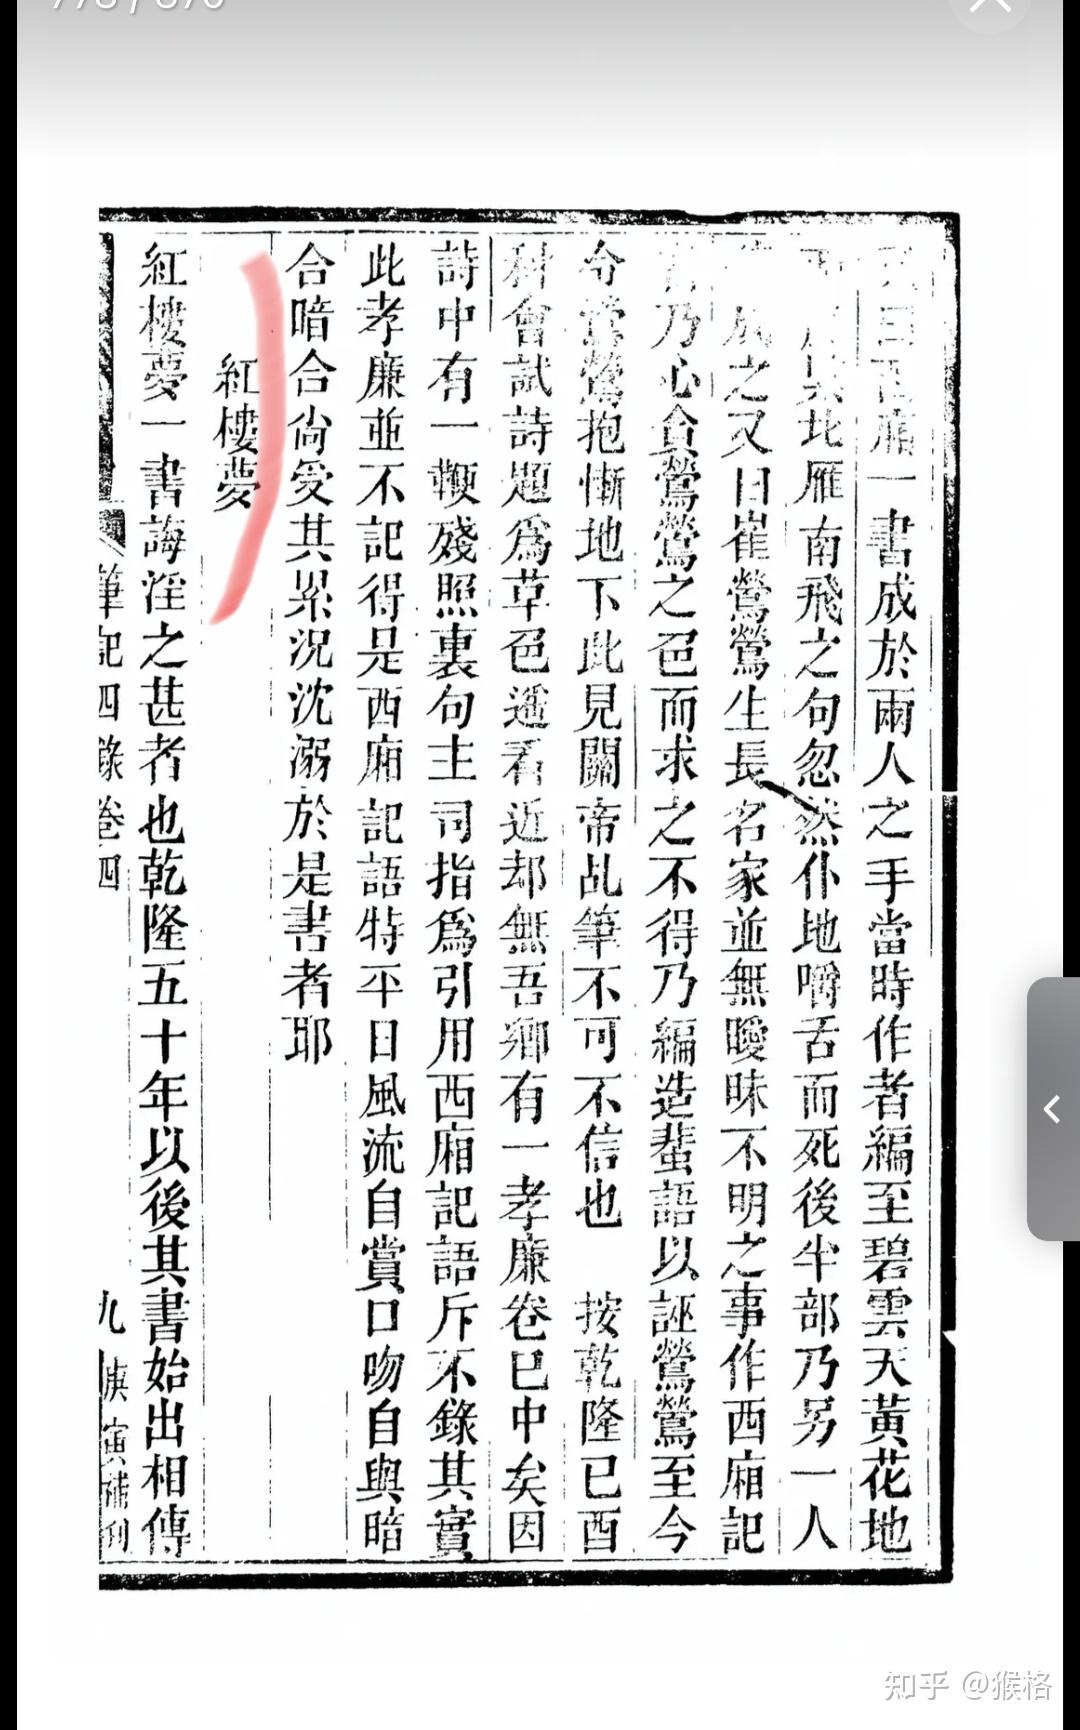 一書成於兩人之手當時作者編至碧雲天黃花地
北雁南飛之句忽然仆地嚼舌而死後半部乃另一人
成之又曰崔鶯鶯生長名家並無曖昧不明之事作西廂記
乃心貪鶯鶯之色而求之不得乃編造蜚語以誣鶯鶯至今
令鶯鶯抱慚地下此見關帝乩筆不可不信也 按乾隆己酉
科會試詩題爲草色遙看近却無吾鄉有一孝廉卷已中矣因
詩中有一鞭殘照裏句主司指爲引用西廂記語斥不錄其實
此孝廉並不記得是西廂記語特平日風流自賞口吻自與暗
合暗合尚受其累況沈溺於是書者耶
紅樓夢
紅樓夢一書誨淫之甚者也乾隆五十年以後其書始出相傳
筆記四錄卷四
九
寅補刊
知乎 @猴格